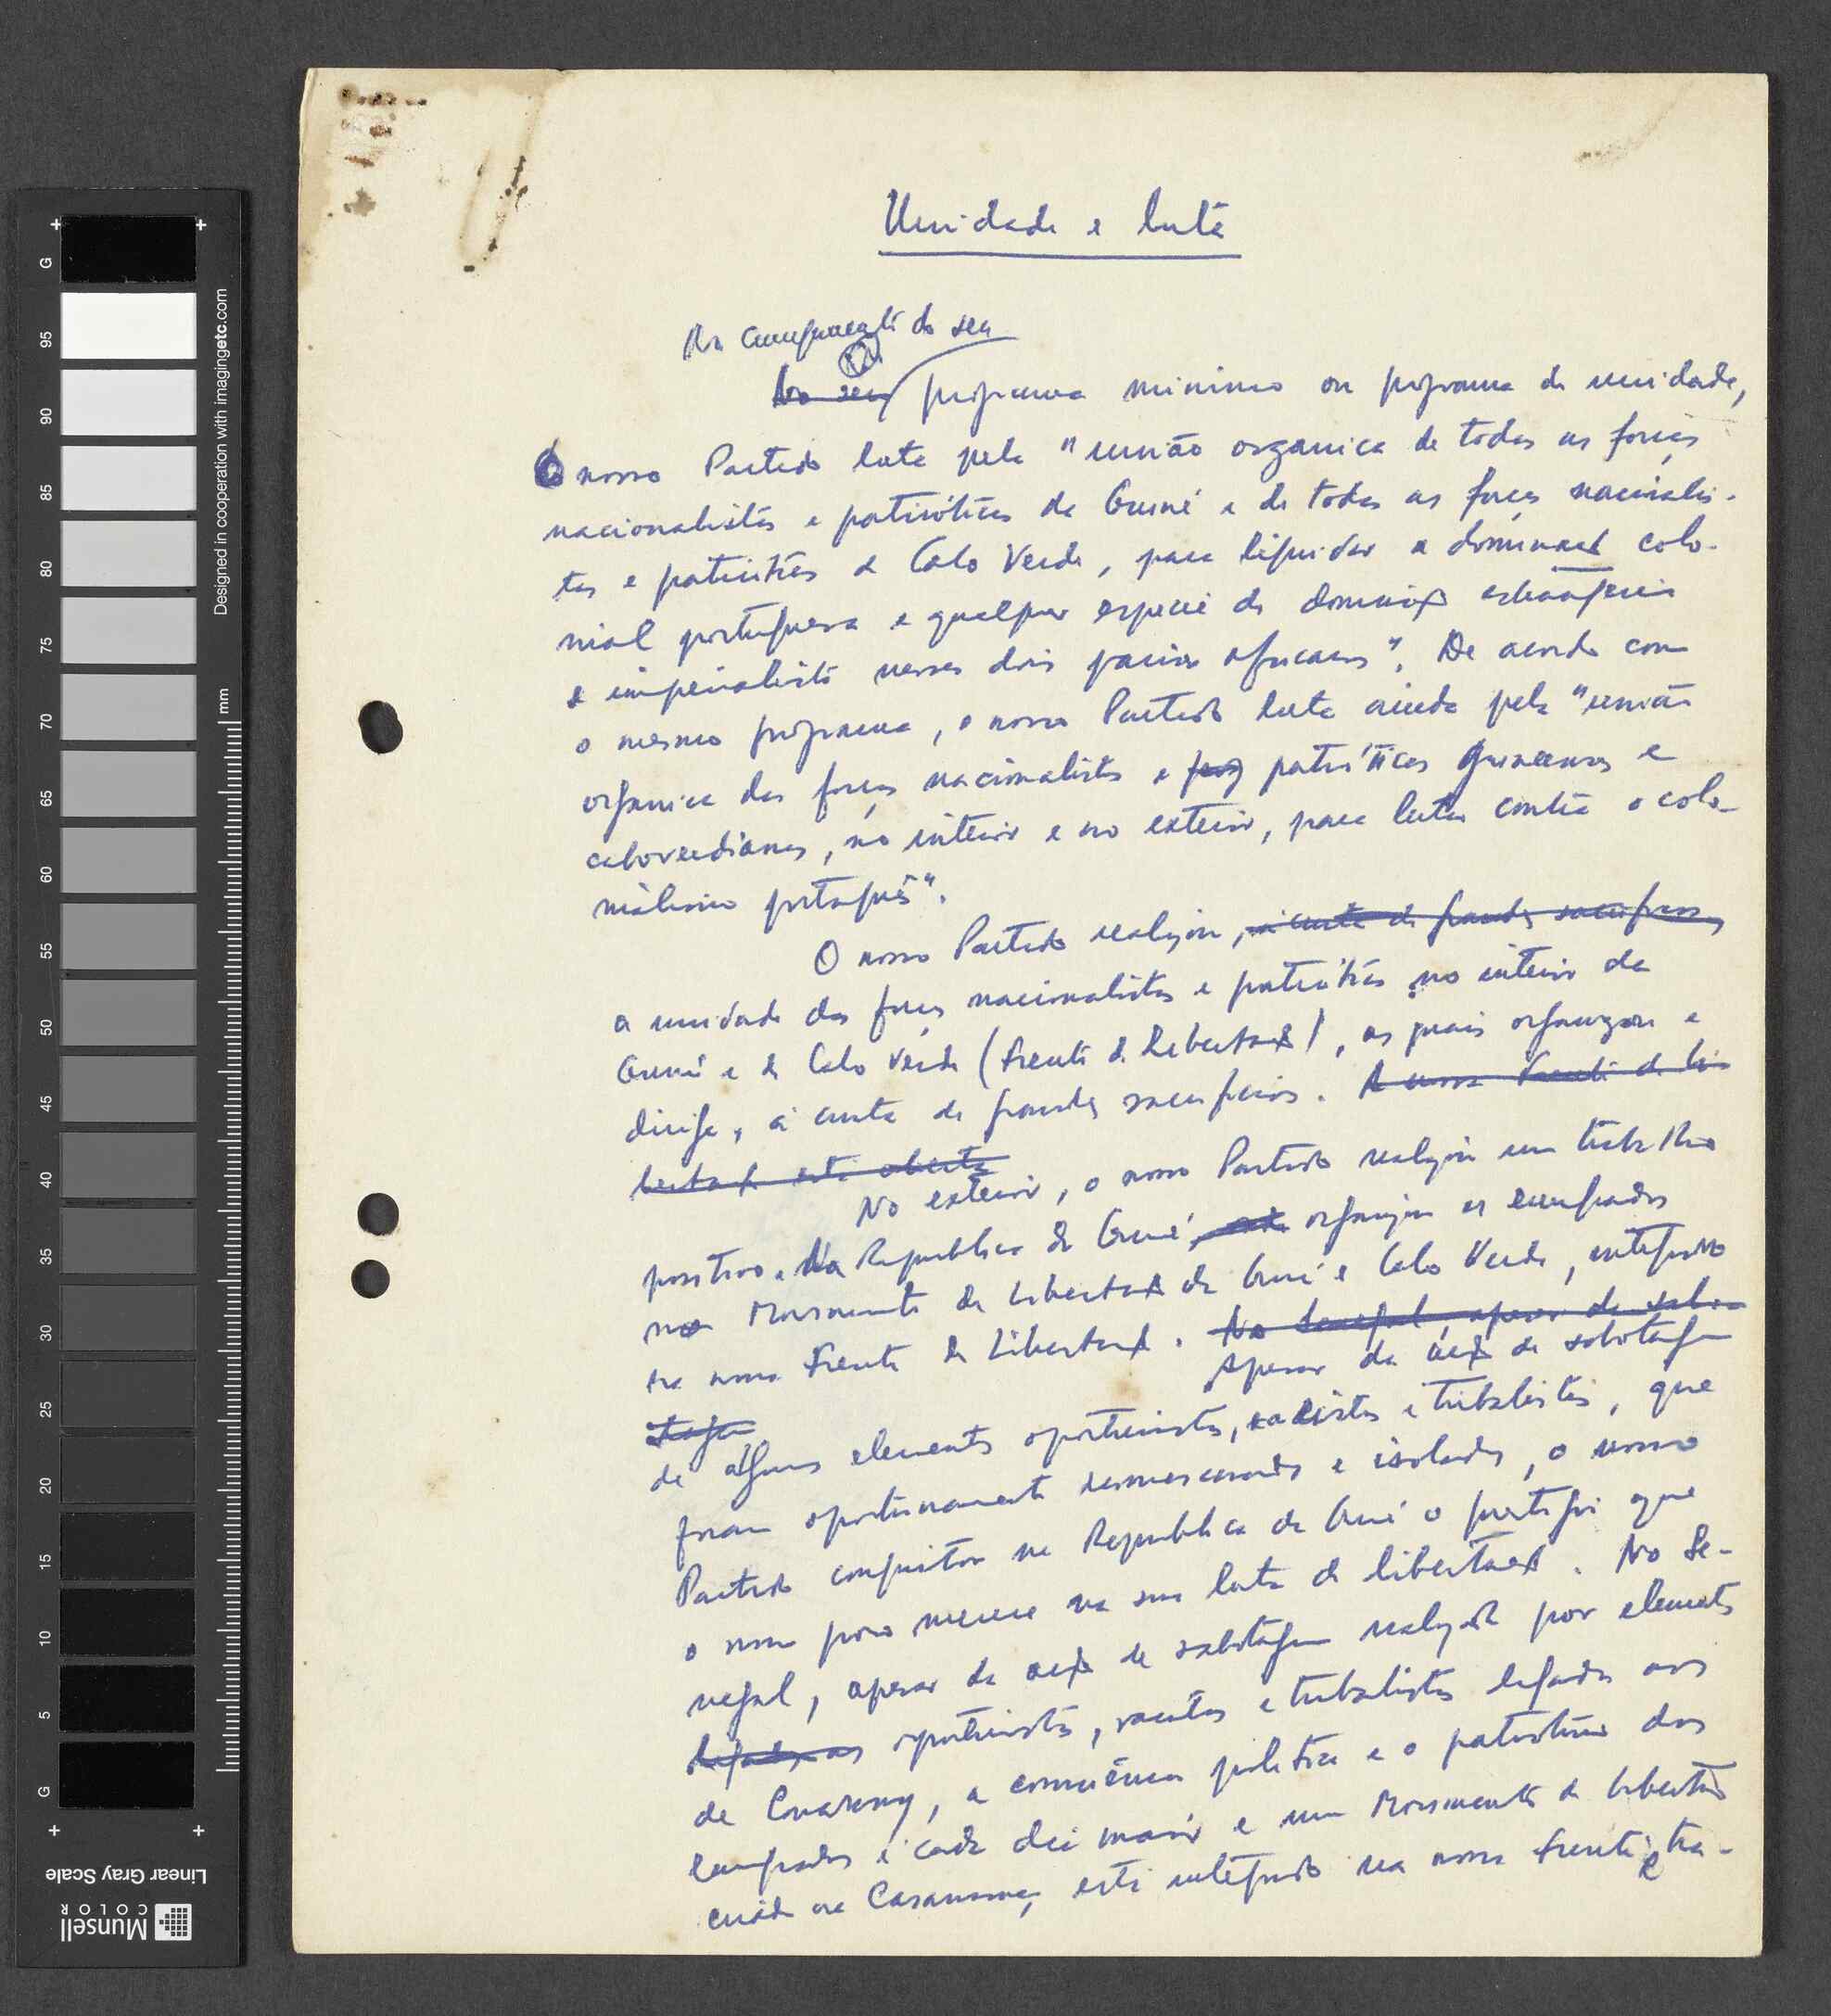 Unidade e luta
Na consequência do seu
No seu programa mínimo ou programa de unidade,
O nosso Partido luta pela "união organica de todas as forças
nacionalistas e patrióticas da Guiné e de todas as forças nacionalis-
tas e patrióticas de Cabo Verde, para liquidar a dominação colo-
nial portuguesa e qualquer especie de dominação estrangeira
e imperialista nesses dois paises africanos". De acordo com
o mesmo programa, o nosso Partido luta ainda pela "união
organica das forças nacionalistas e patrióticas guineenses e
caboverdianas, no interior e no exterior, para lutar contra o colo-
nialismo português".
O nosso Partido realizou, à custa de grandes sacrificios,
a unidade das forças nacionalistas e patrióticas no interior da
Guiné e de Cabo Verde (Frente de Libertação), as quais organizou e
dirige, à custa de grandes sacrificios. A nossa Frente de Li-
bertação está aberta
No exterior, o nosso Partido realizou um trabalho
positivo. Na Republica da Guiné, organizou os emigrados
no Movimento de Libertação da Guiné e Cabo Verde, integrado
na nossa Frente de Libertação. No Senegal, apesar da sabo-
tagem
Apesar da acção de sabotagem
de alguns elementos oportunistas, racistas e tribalistas, que
foram oportunamente desmascarados e isolados, o nosso
Partido conquistou na Republica da Guiné o prestígio que
o nosso povo merece na sua luta de libertação. No Se-
negal, apesar da acção de sabotagem realizada por elementos
ligados aos oportunistas, racistas e tribalistas ligados aos
de Conakry, a consciência politica e o patriotismo dos
emigrados é cada dia maior e um Movimento de Libertação
criado na Casamansa, está integrado na nossa Frente e tra-
Linear Gray Scale
Munsell
COLOR
Designed in cooperation with imagingetc.com
mm
G
95
90
85
80
75
70
65
60
55
50
45
40
35
30
25
20
15
10
5
G